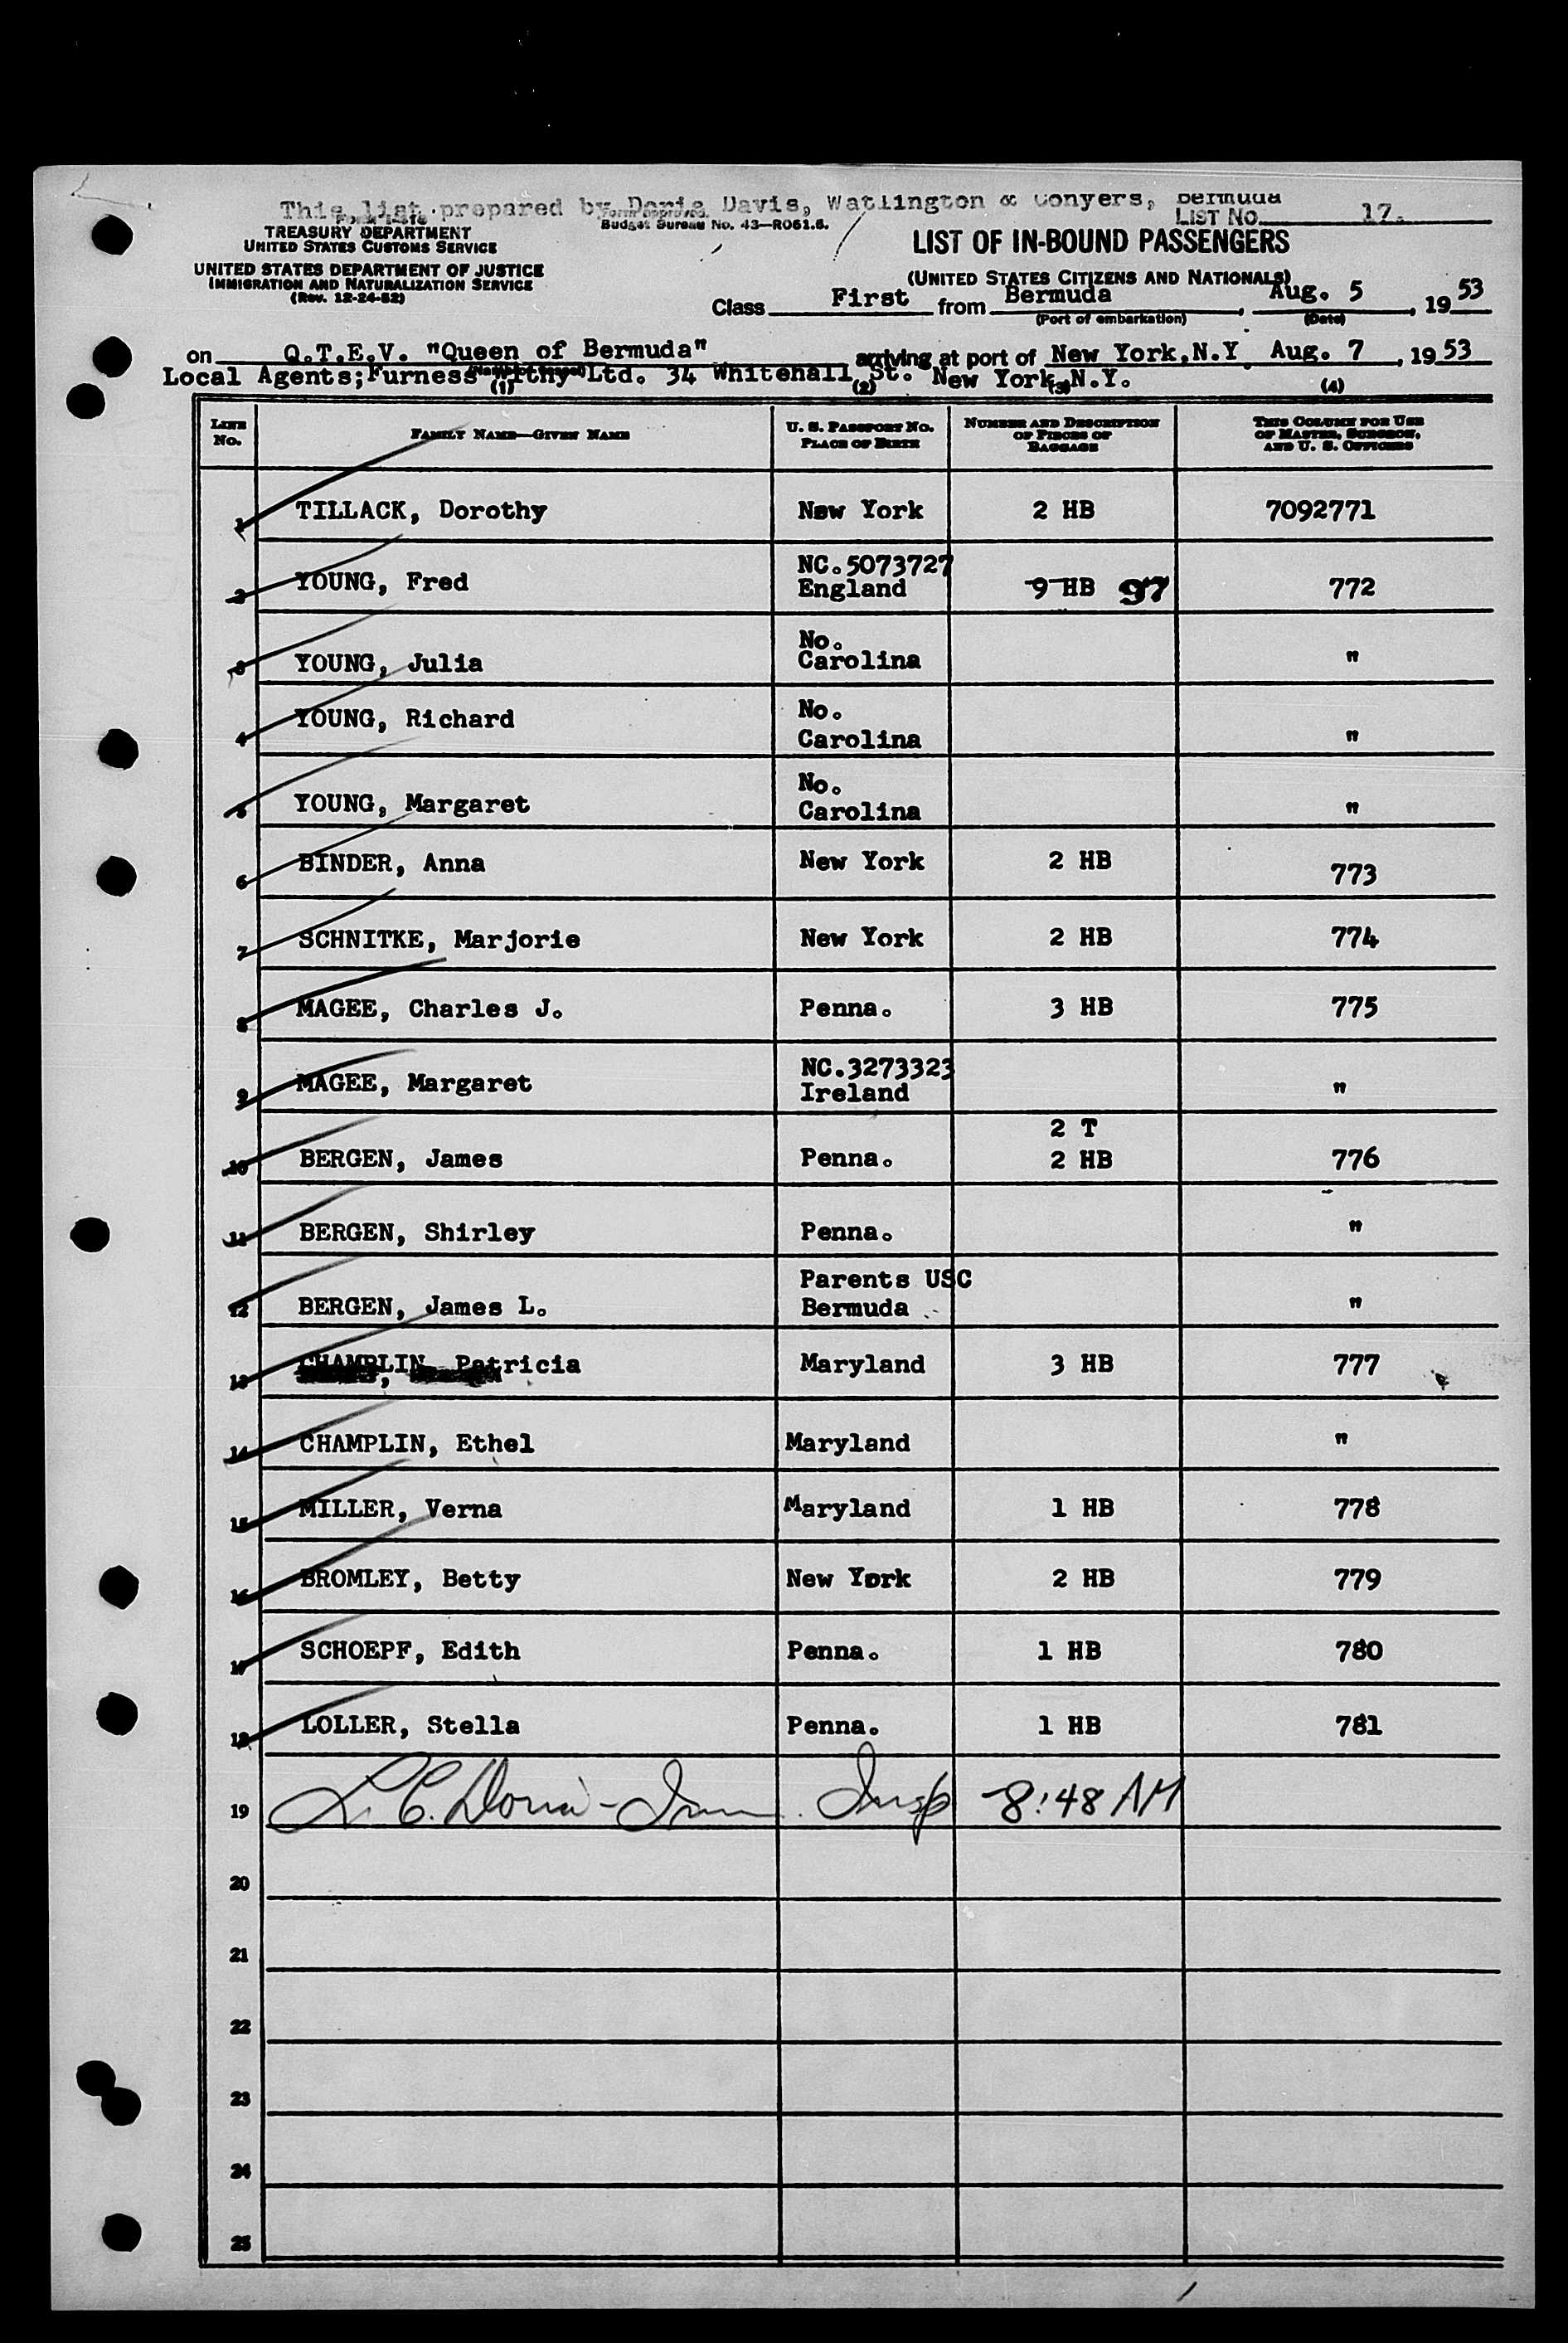 This list prepared by Doris Davis, Watlington & Conyers, Bermuda
LIST NO. 17.
TREASURY DEPARTMENT
UNITED STATES CUSTOMS SERVICE
Form approved.
Budget Bureau No. 43—R061.6.
UNITED STATES DEPARTMENT OF JUSTICE
IMMIGRATION AND NATURALIZATION SERVICE
(Rev. 12-24-52)
LIST OF IN-BOUND PASSENGERS
(UNITED STATES CITIZENS AND NATIONALS)
Class First from Bermuda, Aug. 5, 1953
(Port of embarkation) (Date)
on Q.T.E.V. "Queen of Bermuda" arriving at port of New York, N.Y Aug. 7, 1953
(Name of vessel)
Local Agents; Furness Withy Ltd. 34 Whitehall St. New York, N.Y.
(1) (2) (3) (4)
LINE No. FAMILY NAME—GIVEN NAME U. S. PASSPORT NO. PLACE OF BIRTH NUMBER AND DESCRIPTION OF PIECES OF BAGGAGE THIS COLUMN FOR USE OF MASTER, SURGEON, AND U. S. OFFICERS
1 TILLACK, Dorothy New York 2 HB 7092771
2 YOUNG, Fred NC.5073727 England 9 HB 97 772
3 YOUNG, Julia No. Carolina "
4 YOUNG, Richard No. Carolina "
5 YOUNG, Margaret No. Carolina "
6 BINDER, Anna New York 2 HB 773
7 SCHNITKE, Marjorie New York 2 HB 774
8 MAGEE, Charles J. Penna. 3 HB 775
9 MAGEE, Margaret NC.3273323 Ireland "
10 BERGEN, James Penna. 2 T 2 HB 776
11 BERGEN, Shirley Penna. "
12 BERGEN, James L. Parents USC Bermuda "
13 CHAMPLIN, Patricia Maryland 3 HB 777
14 CHAMPLIN, Ethel Maryland "
15 MILLER, Verna Maryland 1 HB 778
16 BROMLEY, Betty New York 2 HB 779
17 SCHOEPF, Edith Penna. 1 HB 780
18 LOLLER, Stella Penna. 1 HB 781
19 L. C. Insp 8:48 AM
20
21
22
23
24
25